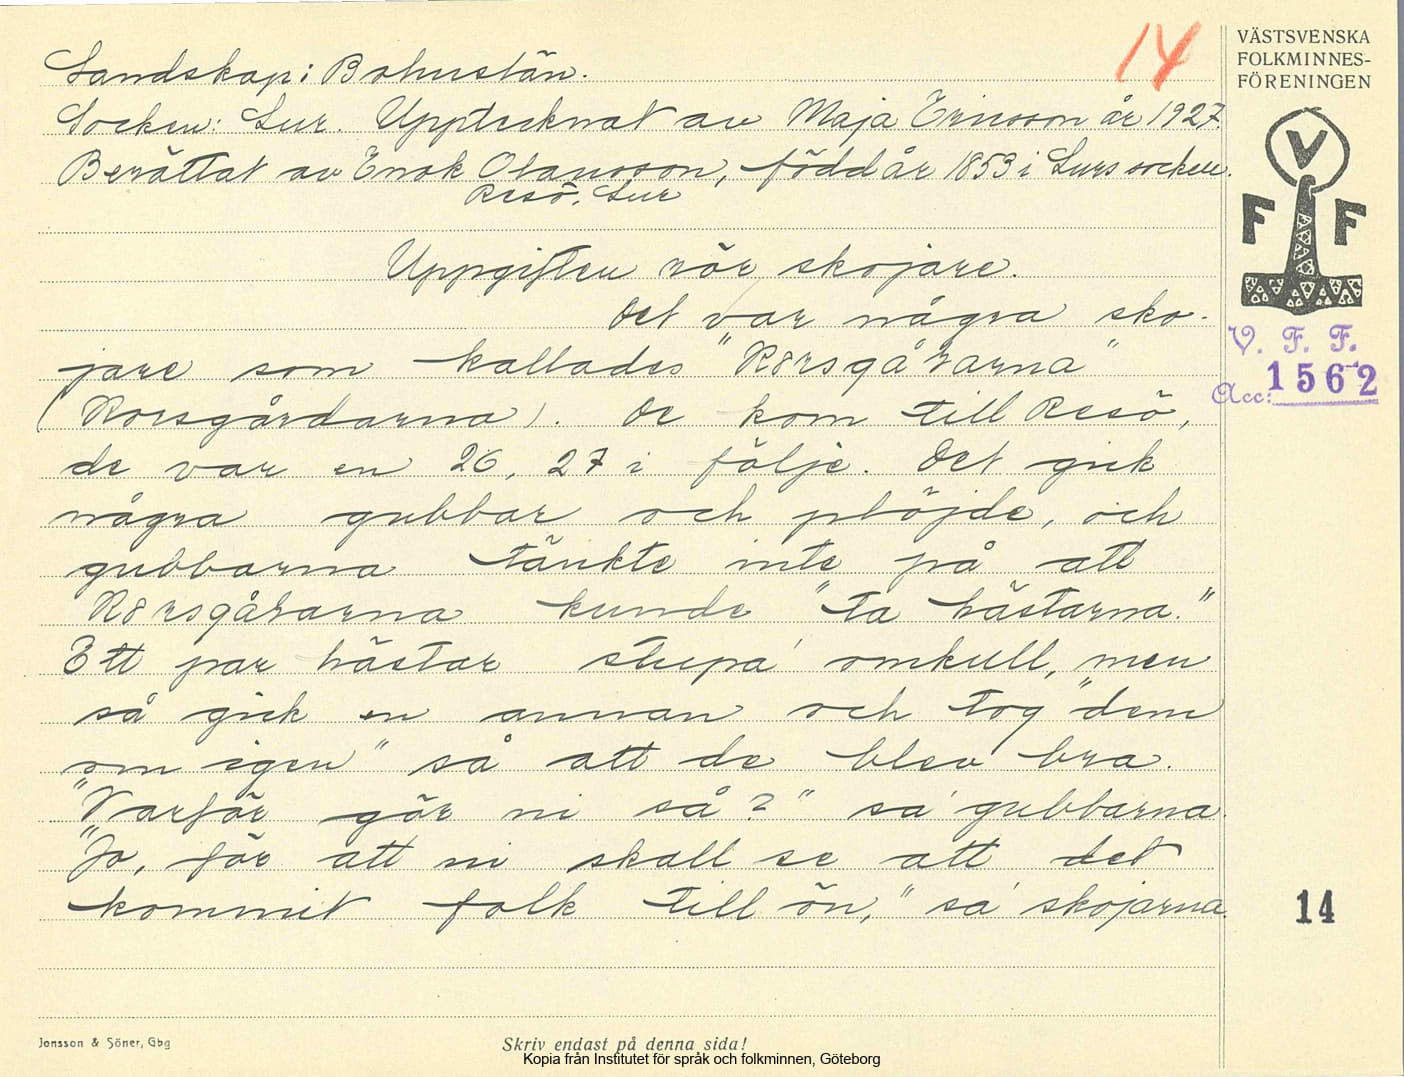 14
VÄSTSVENSKA
FOLKMINNES-
FÖRENINGEN
V
F F
V. F. F.
Acc: 1562
Landskap: Bohuslän.
Socken: Lur. Upptecknat av Maja Ericsson år 1927.
Berättat av Enok Olausson, född år 1853 i Lurs socken.
Resö, Lur
Uppgiften rör skojare.
Det var några sko-
jare som kallades "
(Korsgårdarna). De kom till Resö,
de var en 26, 27 i följe. Det gick
några gubbar och plöjde, och
gubbarna tänkte inte på att
kunde "ta hästarna."
Ett par hästar stupa' omkull, men
så gick en annan och tog "dem
om igen" så att de blev bra.
"Varför gör ni så?" sa' gubbarna.
"Jo, för att ni skall se att det
kommit folk till ön," sa' skojarna.
14
Jonsson & Söner, Gbg
Skriv endast på denna sida!
Kopia från Institutet för språk och folkminnen, Göteborg